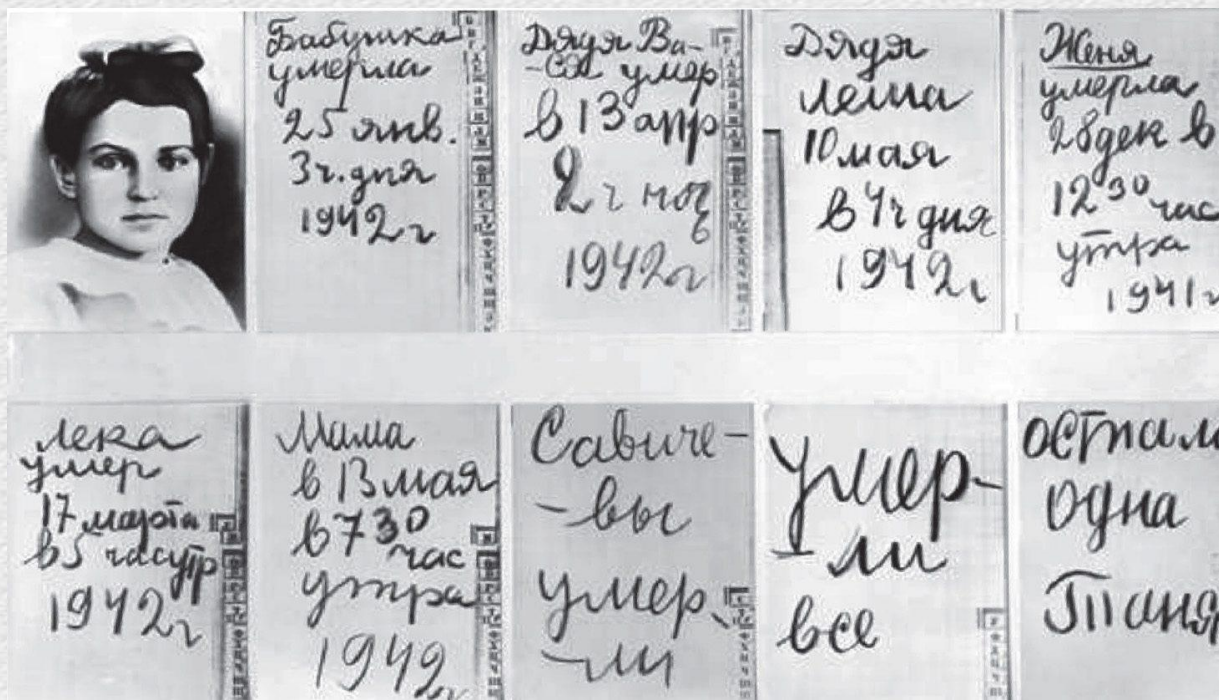 Бабушка
умерла
25 янв.
3 ч. дня
1942 г
Дядя Ва-
-ся умер
в 13 апр
2 ч ноч
1942 г
Дядя
Леша
10 мая
в 4 ч дня
1942 г
Женя
умерла
28 дек в
12 30 час
утра
1941 г
Лека
умер
17 марта
в 5 час утр
1942 г
Мама
в 13 мая
в 7 30
час
утра
1942 г
Савиче-
-вы
умер-
-ли
Умер-
-ли
все
Остал
одна
Таня